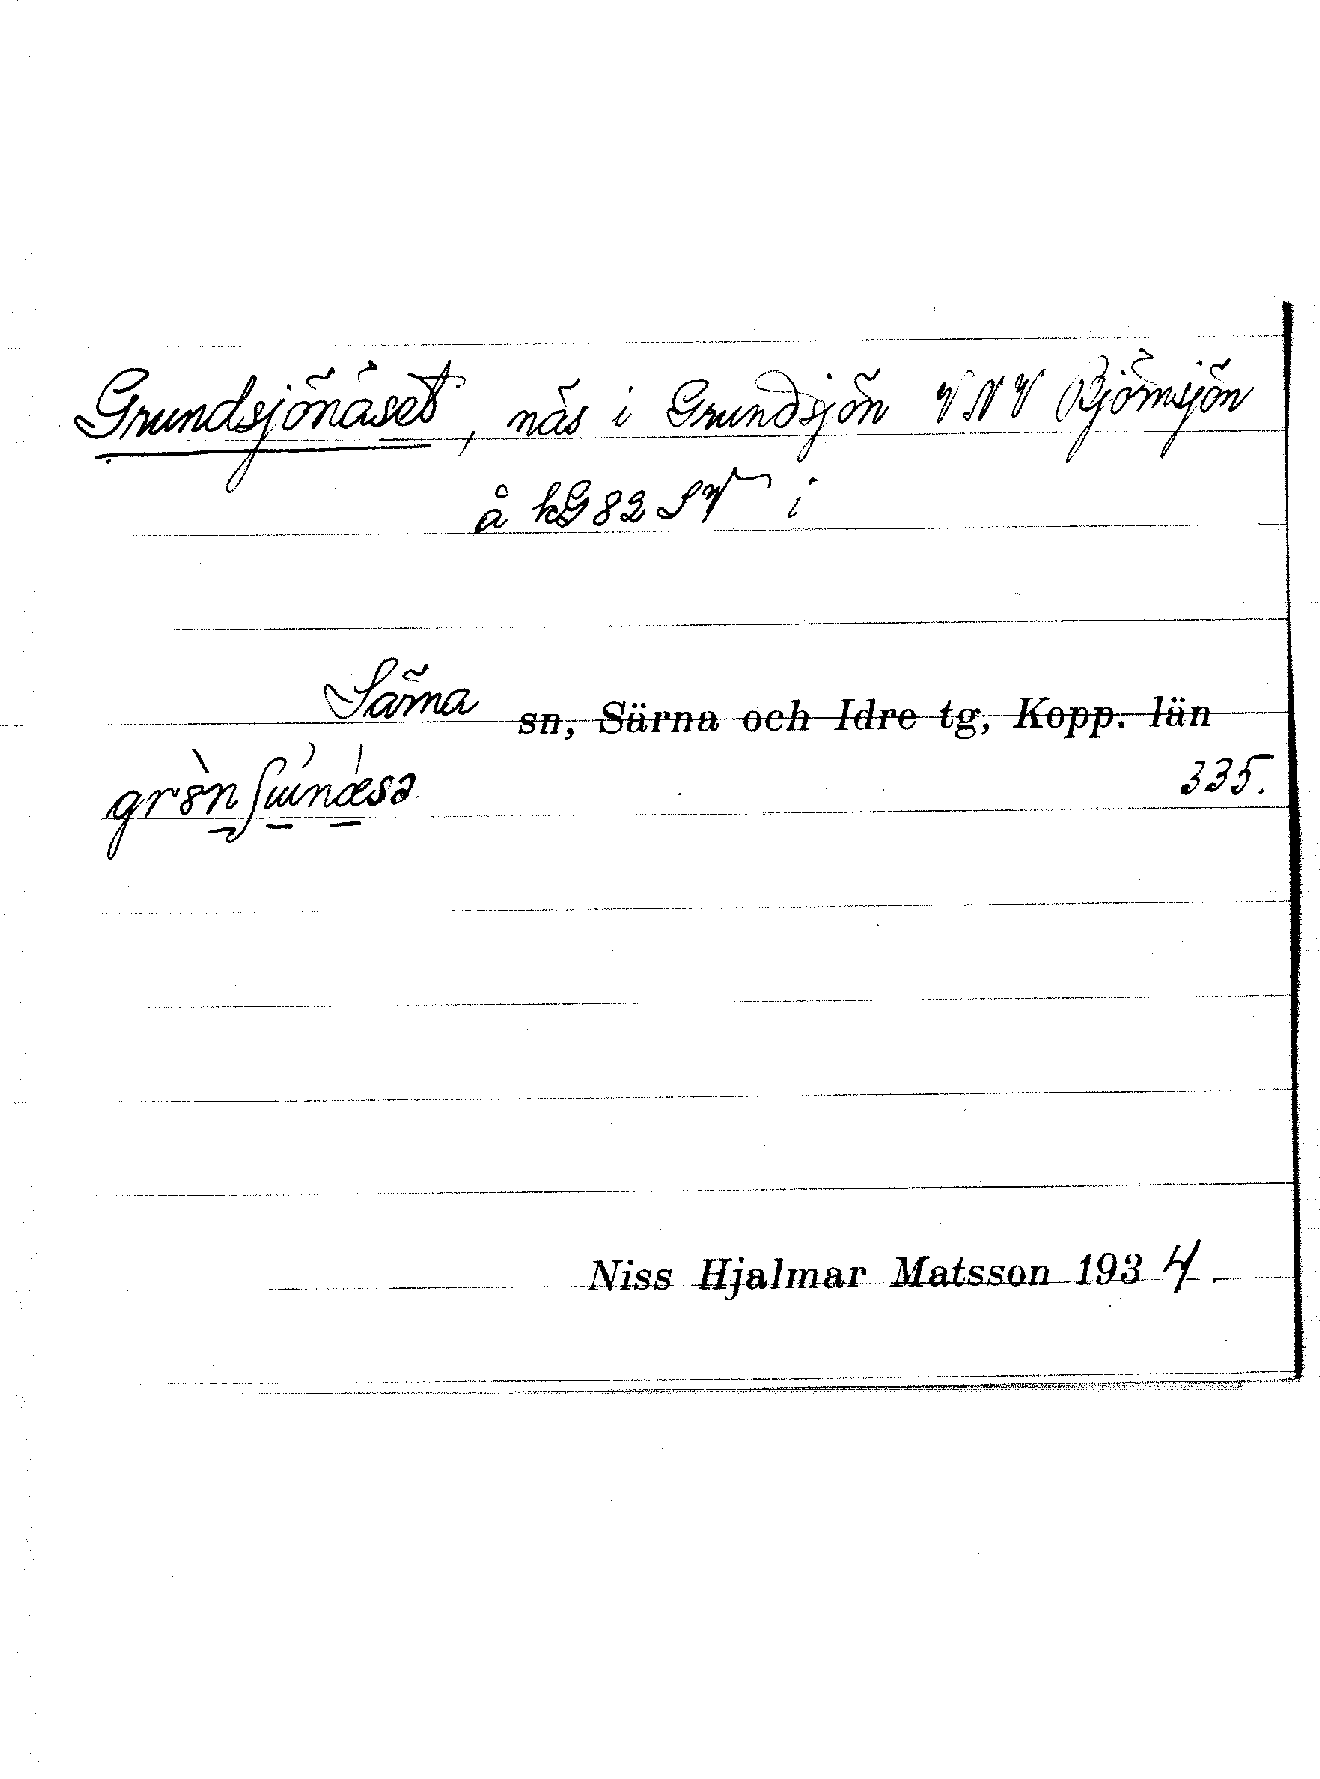 Grundsjönäset, näs i Grundsjön VNV Björnsjön
å kG 82 SV i
Särna sn, Särna och Idre tg, Kopp. län
335.
Niss Hjalmar Matsson 1934.